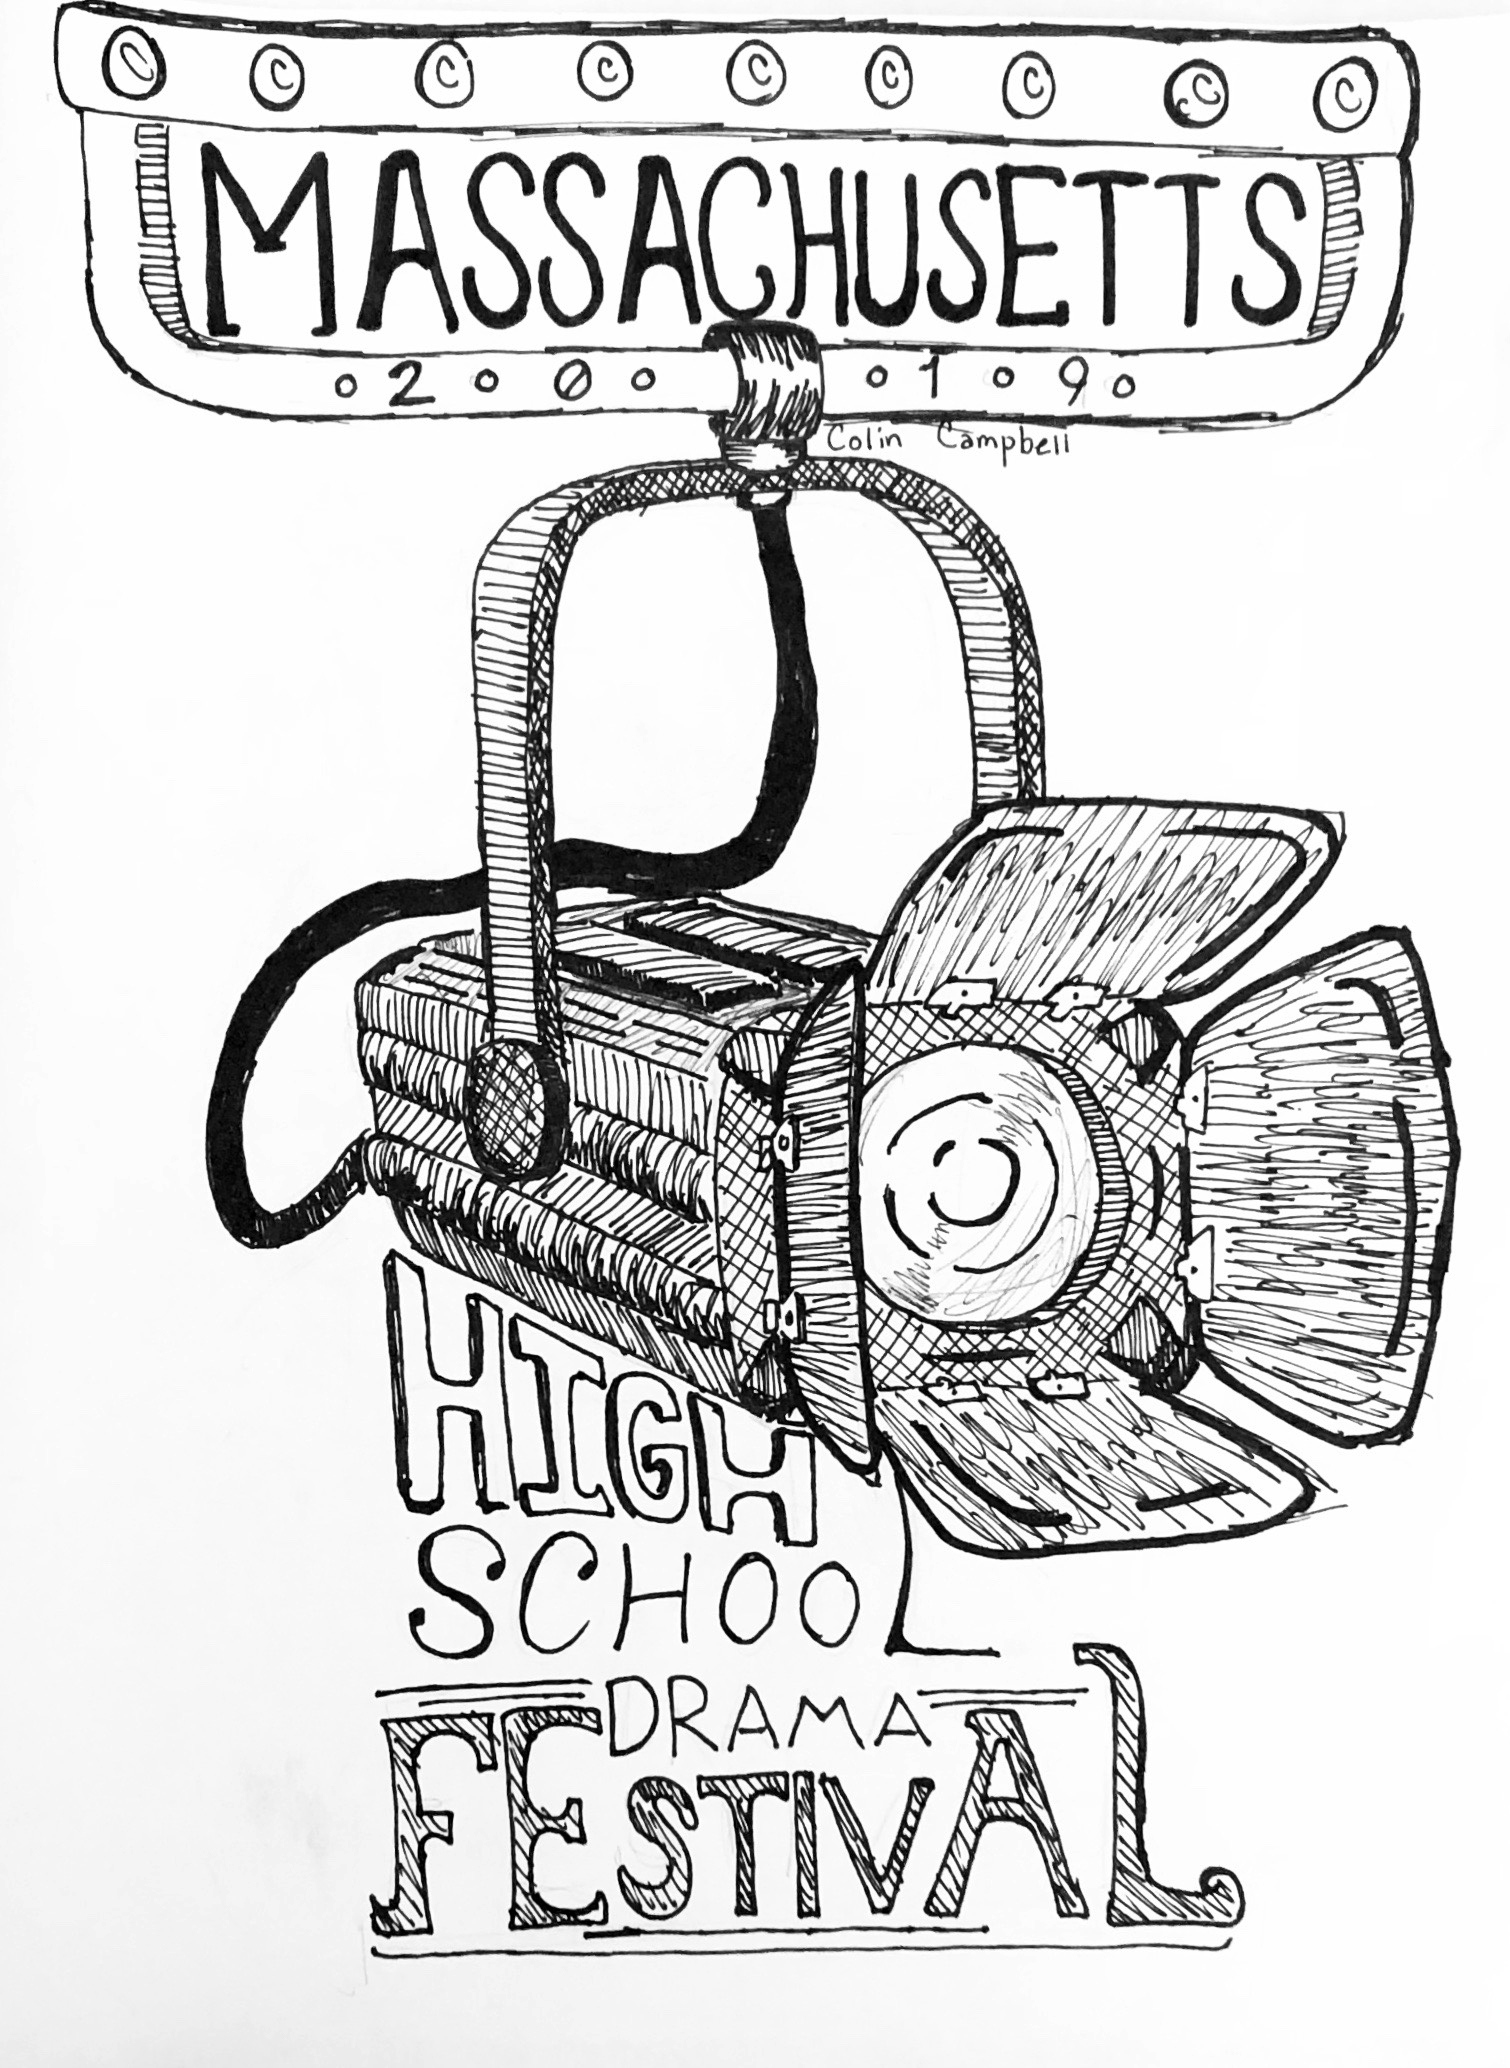 MASSACHUSETTS
2019
Colin Campbell
HIGH
SCHOOL
DRAMA
FESTIVAL